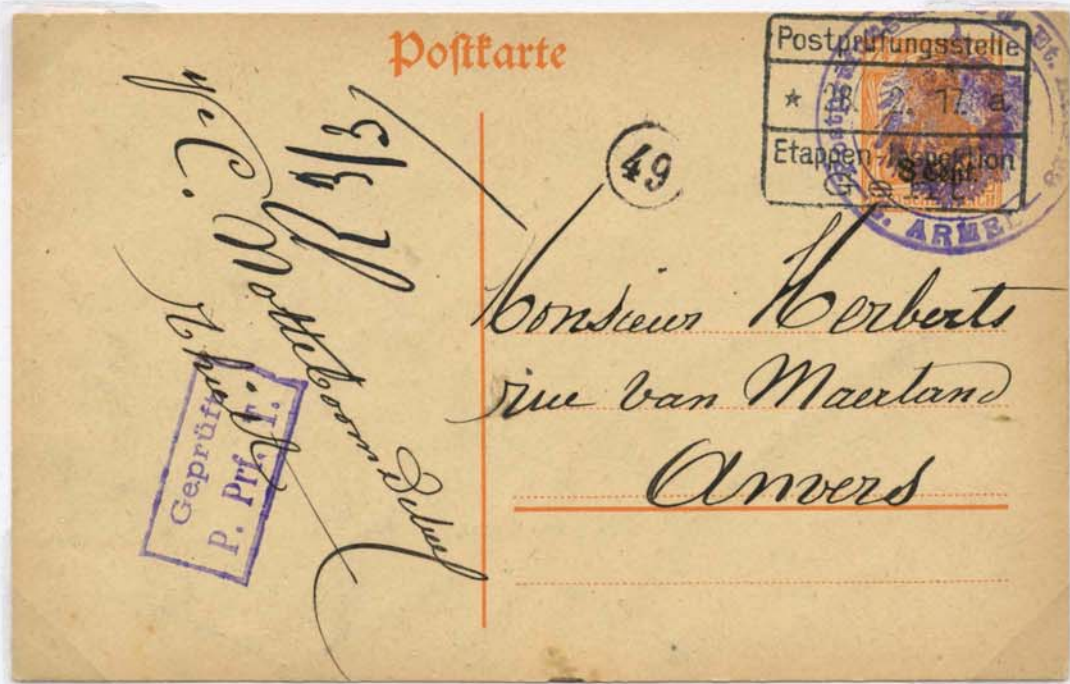 Postkarte
Postprüfungsstelle
* 28. 2. 17. a
Etappen-Inspektion
8 Cent.
ARMEE
49
Monsieur Herberts
rue van Maerland
Anvers
C. Motteboom
Thielt
Geprüft
P. Prf. T.